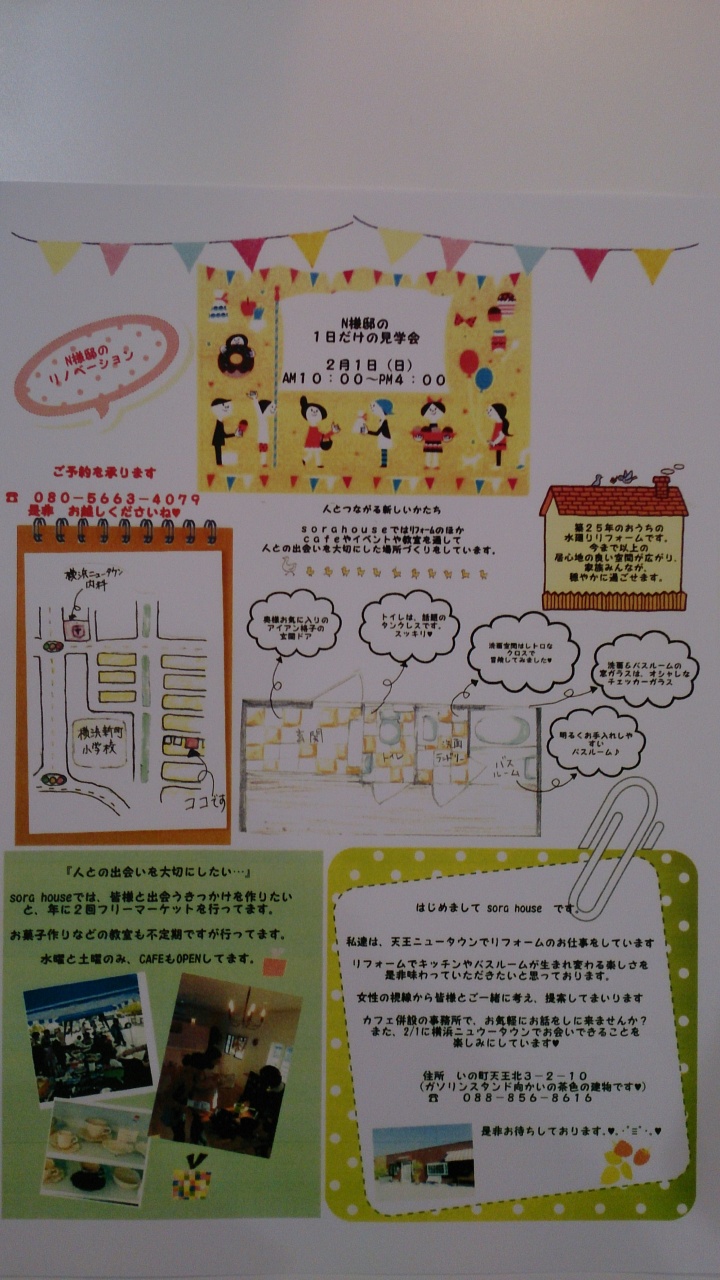 N様邸の
リノベーション
N様邸の
1日だけの見学会
2月1日(日)
AM10:00~PM4:00
ご予約を承ります
☎ 080-5663-4079
是非 お越しくださいね♥
人とつながる新しいかたち
sorahouseではリフォームのほか
cafeやイベントや教室を通して
人との出会いを大切にした場所づくりをしています。
築25年のおうちの
水廻りリフォームです。
今まで以上の
居心地の良い空間が広がり、
家族みんなが、
穏やかに過ごせます。
横浜ニュータウン
内科
横浜新町
小学校
ココです
奥様お気に入りの
アイアン格子の
玄関ドア
トイレは、話題の
タンクレスです。
スッキリ♥
洗面空間はレトロな
クロスで
冒険してみました♥
洗面&バスルームの
窓ガラスは、オシャレな
チェッカーガラス
明るくお手入れしや
すい
バスルーム♪
玄関
トイレ
洗面
ランドリー
バス
ルーム
『人との出会いを大切にしたい…』
sora houseでは、皆様と出会うきっかけを作りたい
と、年に2回フリーマーケットを行ってます。
お菓子作りなどの教室も不定期ですが行ってます。
水曜と土曜のみ、CAFEもOPENしてます。
はじめまして sora house です。
私達は、天王ニュータウンでリフォームのお仕事をしています
リフォームでキッチンやバスルームが生まれ変わる楽しさを
是非味わっていただきたいと思っております。
女性の視線から皆様とご一緒に考え、提案してまいります
カフェ併設の事務所で、お気軽にお話をしに来ませんか?
また、2/1に横浜ニュウータウンでお会いできることを
楽しみにしています♥
住所 いの町天王北3-2-10
(ガソリンスタンド向かいの茶色の建物です♥)
☎ 088-856-8616
是非お待ちしております.♥.・゚≡゚・.♥